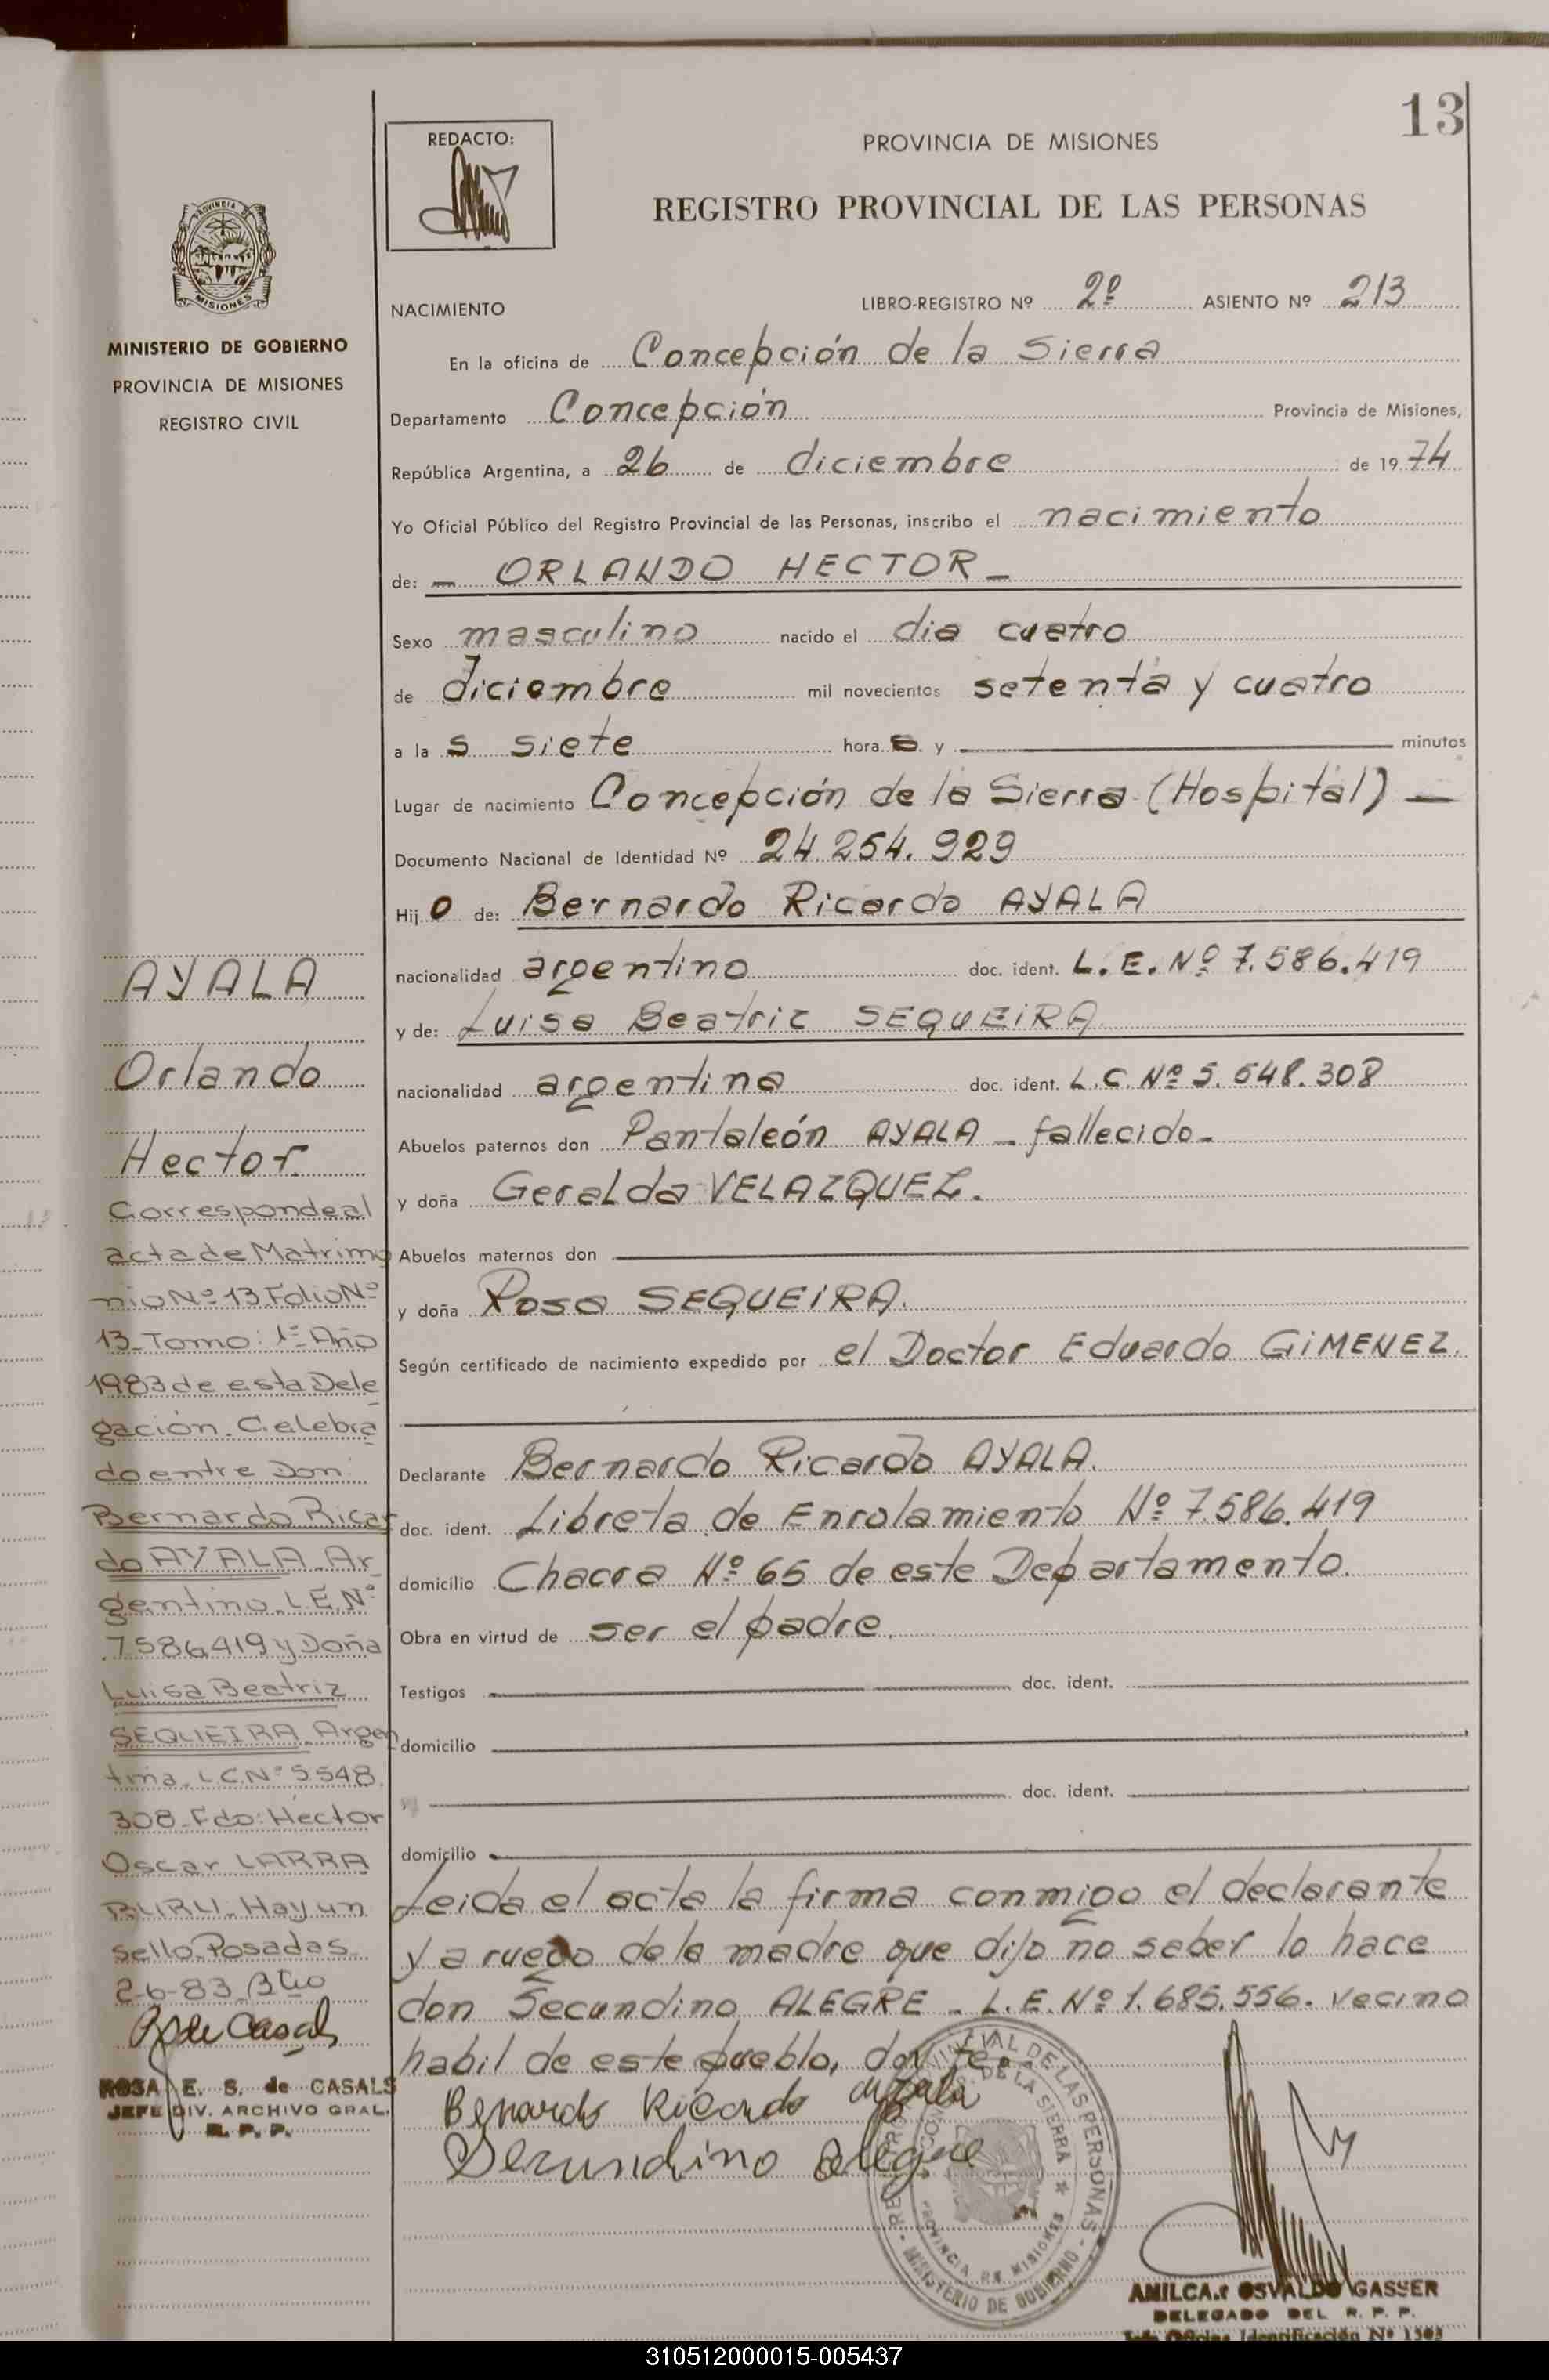 13
REDACTO:
PROVINCIA DE MISIONES
REGISTRO PROVINCIAL DE LAS PERSONAS
PROVINCIA DE
MISIONES
MINISTERIO DE GOBIERNO
PROVINCIA DE MISIONES
REGISTRO CIVIL
NACIMIENTO LIBRO-REGISTRO Nº 2º ASIENTO Nº 213
En la oficina de Concepción de la Sierra
Departamento Concepción Provincia de Misiones,
República Argentina, a 26 de diciembre de 1974
Yo Oficial Público del Registro Provincial de las Personas, inscribo el nacimiento
de: - ORLANDO HECTOR -
Sexo masculino nacido el dia cuatro
de diciembre mil novecientos setenta y cuatro
a la s siete hora s y — minutos
Lugar de nacimiento Concepción de la Sierra (Hospital) —
Documento Nacional de Identidad Nº 24.254.929
Hij o de: Bernardo Ricardo AYALA
nacionalidad argentino doc. ident. L.E. Nº 7.586.419
y de: Luisa Beatriz SEQUEIRA
nacionalidad argentina doc. ident. L.C. Nº 5.548.308
Abuelos paternos don Pantaleón AYALA - fallecido-
y doña Geralda VELAZQUEZ.
Abuelos maternos don —
y doña Rosa SEQUEIRA.
Según certificado de nacimiento expedido por el Doctor Eduardo GIMENEZ.
Declarante Bernardo Ricardo AYALA.
doc. ident. Libreta de Enrolamiento Nº 7.586.419
domicilio Chacra Nº 65 de este Departamento.
Obra en virtud de ser el padre.
Testigos — doc. ident. —
domicilio —
— doc. ident. —
domicilio —
Leida el acta la firma conmigo el declarante
y a ruego de la madre que dijo no saber lo hace
don Secundino ALEGRE - L.E. Nº 1.685.556. vecino
habil de este pueblo, doy fe.
Bernardo Ricardo Ayala
Secundino Alegre
AYALA
Orlando
Hector.
Corresponde al
acta de Matrimo
nio Nº 13 Folio Nº
13 Tomo: 1º Año
1983 de esta Dele
gación. Celebra
do entre Don
Bernardo Ricar
do AYALA. Ar
gentino. L.E. Nº
7.586.419 y Doña
Luisa Beatriz
SEQUEIRA. Argen
tina. L.C. Nº 5.548.
308. Fdo: Hector
Oscar LARRA
BURU. Hay un
sello. Posadas
2-6-83
R de Casals
ROSA E. S. de CASALS
JEFE DIV. ARCHIVO GRAL.
R. P. P.
DE LAS PERSONAS
DE LA SIERRA
PROVINCIA DE MISIONES
MINISTERIO DE GOBIERNO
AMILCAR OSVALDO GASSER
DELEGADO DEL R. P. P.
Jefe Oficina Identificación Nº
310512000015-005437